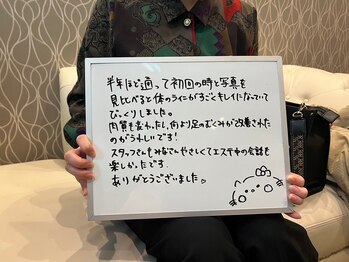 半年ほど通って初回の時と写真を
見比べると体のラインがすごくキレイになっていて
びっくりしました。
肉質も変わったし、何より足のむくみが改善された
のがうれしいです!
スタッフさんもみなさんやさしくてエステ中の会話も
楽しかったです。
ありがとうございました。